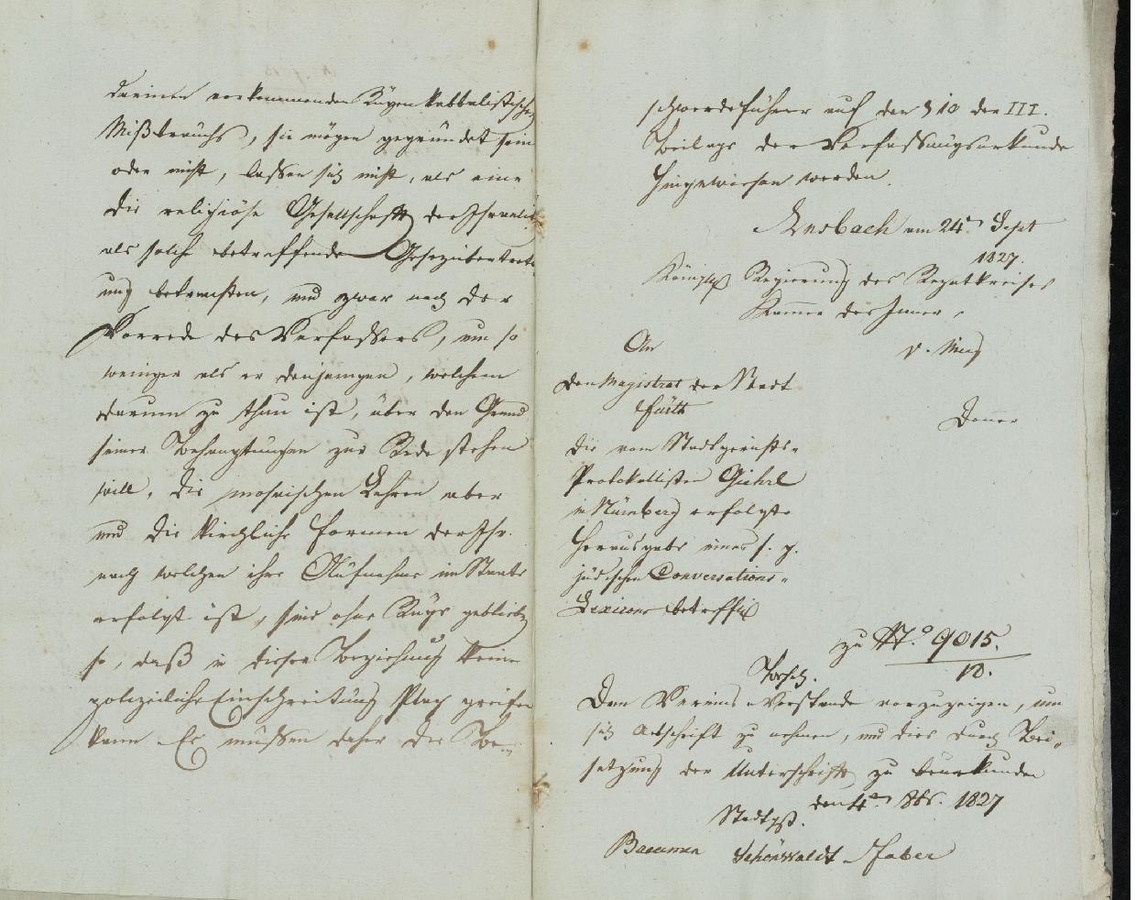 darinen vorkommenden Rügen kabbalistischen
Mißbrauchs, sie mögen gegründet sein
oder nicht, lassen sich nicht, als eine
die religiöse Gesellschaft der Israeliten
als solche betreffende Gesezübertret-
ung betrachten, und zwar nach der
Vorrede des Verfassers, um so
weniger als er denjenigen, welchem
darum zu thun ist, über den Grund
seiner Behauptungen zur Rede stehen
will. Die mosaischen Lehren aber
und die kirchliche Formen der Isr.
nach welchen ihre Aufnahme im Staate
erfolgt ist, sind ohne Rüge geblieben
so, daß in dieser Beziehung keine
polizeiliche Einschreitung Platz greifen
kann. Es müssen daher die Be-
schwerdeführer auf den § 10 der III.
Beilage der Verfassungsurkunde
hingewiesen werden.
Ansbach am 24n Sept
1827.
Königl. Regierung des Rezatkreises
Kammer des Innern,
An
v. Mieg
den Magistrat der Stadt
Fürth
Die vom Stadtgerichts-
Protokollisten
in Nürnberg erfolgte
Herausgabe eines s. g.
jüdischen Conversations-
Lexicons betreffend
zu No 9015.
Dem Vereins-Vorstande vorzuzeigen, um
sich Abschrift zu nehmen, und dies durch Bei-
setzung der Unterschrift zu beurkunden
den 4n 8br. 1827
Stadtmgst.
Baeumen Schönwaldt Faber